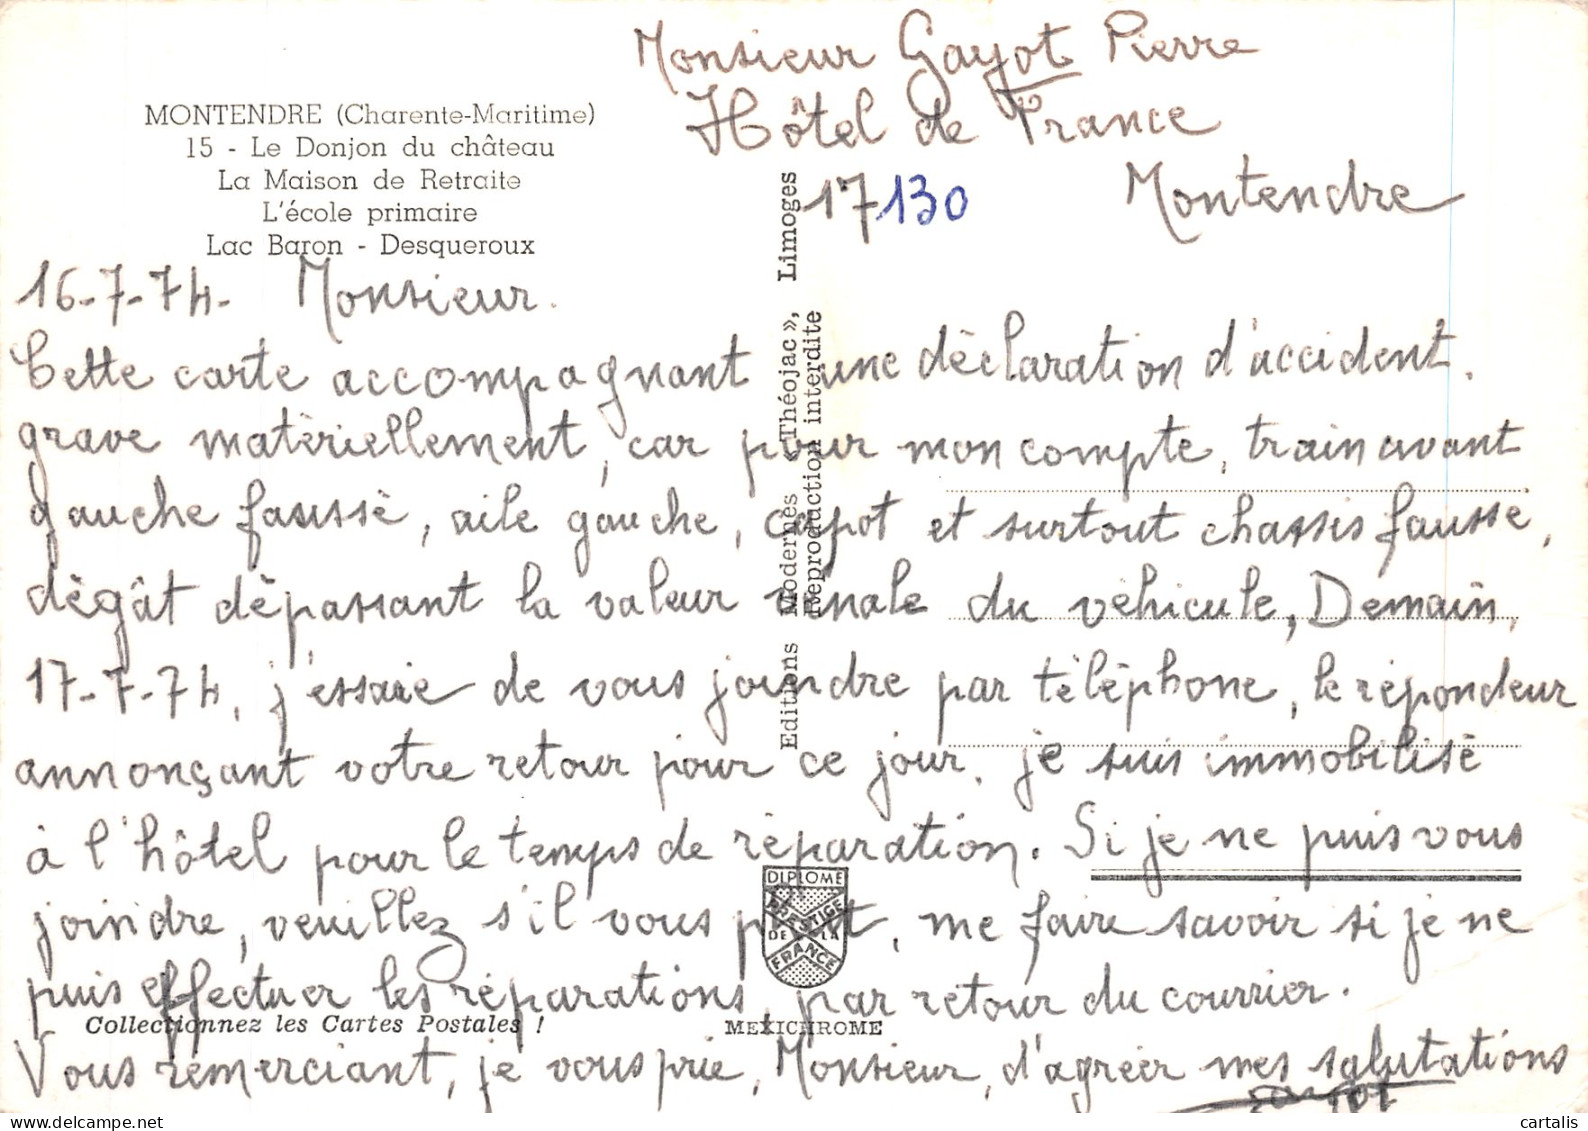 Monsieur Gayot Pierre
Hôtel de France
17130 Montendre
MONTENDRE (Charente-Maritime)
15 - Le Donjon du château
La Maison de Retraite
L'école primaire
Lac Baron - Desqueroux
16-7-74. Monsieur.
Cette carte accompagnant une déclaration d'accident.
grave matériellement, car pour mon compte, train avant
gauche faussé, aile gauche, capot et surtout chassis fausse,
dégât dépassant la valeur vénale du véhicule, Demain,
17-7-74, j'essaie de vous joindre par téléphone, le répondeur
annonçant votre retour pour ce jour. je suis immobilisé
à l'hôtel pour le temps de réparation. Si je ne puis vous
joindre, veuillez s'il vous plait, me faire savoir si je ne
puis effectuer les réparations, par retour du courrier.
Vous remerciant, je vous prie, Monsieur, d'agréer mes salutations
Gayot
Editions Modernes « Théojac », Limoges
Reproduction interdite
DIPLOME
PRESTIGE
DE LA
FRANCE
Collectionnez les Cartes Postales !
MEXICHROME
cartalis